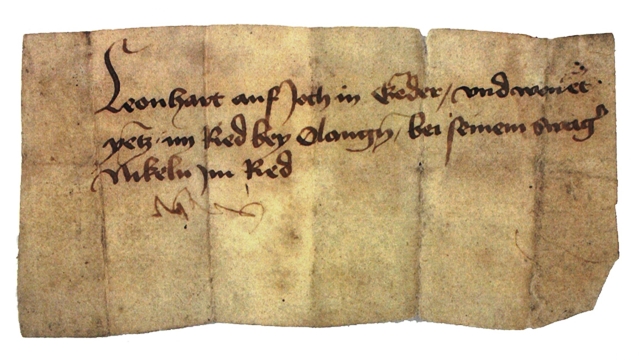 Leonhart auf Joch in / vnd wonet
yetz im Ried bey Olangn / bei seinem swag'
Nikeln Im Ried